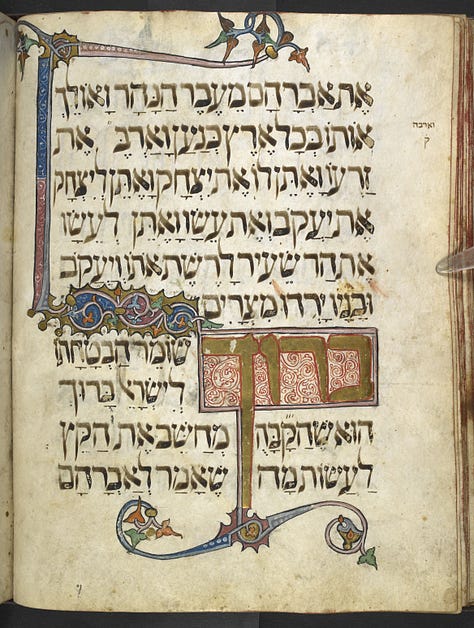 את אברהם מעבר הנהר ואולך
אותו בכל ארץ כנען וארב את
וארבה
ק
זרעו ואתן לו את יצחק ואתן ליצחק
את יעקב ואת עשו ואתן לעשו
את הר שעיר לרשת אתו ויעקב
ובניו ירדו מצרים
ברוך שומר הבטחתו
לישראל ברוך
הוא שהקבה מחשב את הקץ
לעשות מה שאמר לאברהם